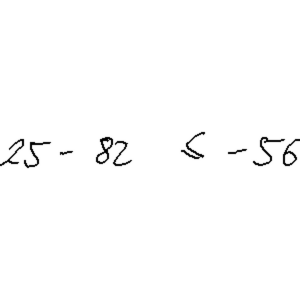 25 - 82 ≤ -56